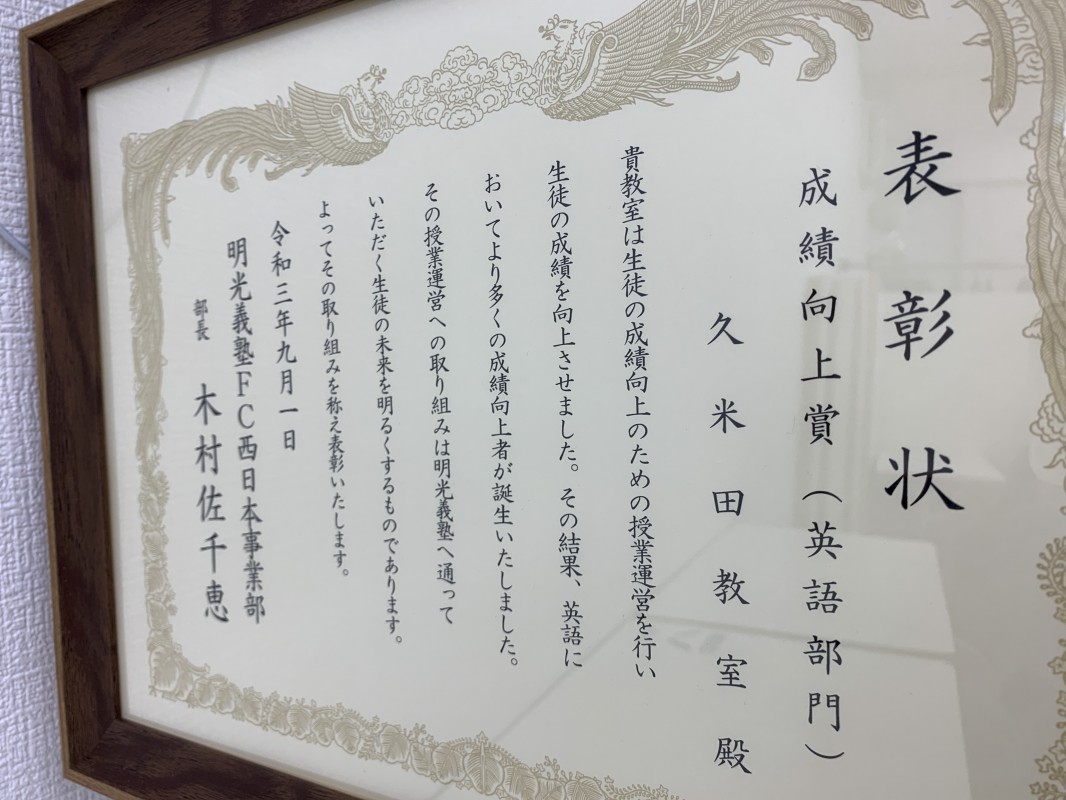 表彰状
成績向上賞（英語部門）
久米田教室殿
貴教室は生徒の成績向上のための授業運営を行い
生徒の成績を向上させました。その結果、英語に
おいてより多くの成績向上者が誕生いたしました。
その授業運営への取り組みは明光義塾へ通って
いただく生徒の未来を明るくするものであります。
よってその取り組みを称え表彰いたします。
令和三年九月一日
明光義塾ＦＣ西日本事業部
部長 木村佐千恵